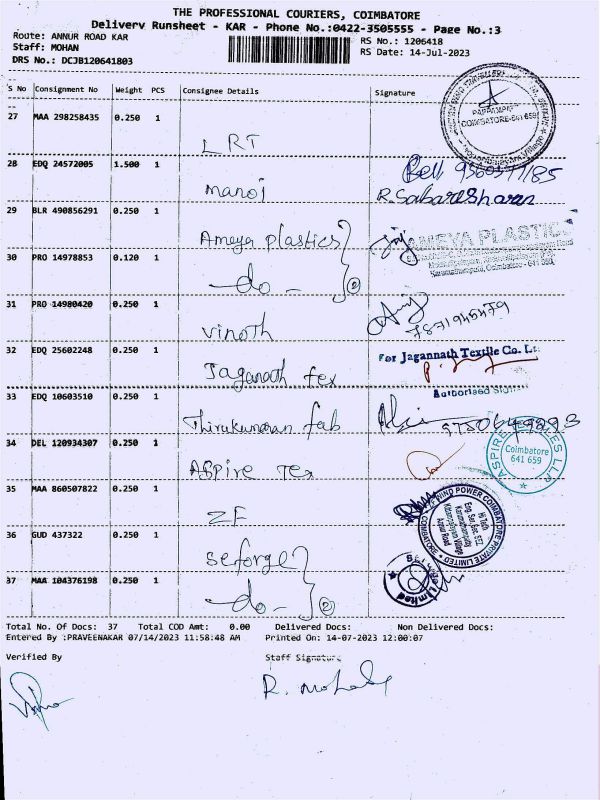 THE PROFESSIONAL COURIERS, COIMBATORE
Delivery Runsheet - KAR - Phone No.:0422-3505555 - Page No.:3
Route: ANNUR ROAD KAR
RS No.: 1206418
Staff: MOHAN
RS Date: 14-Jul-2023
DRS No.: DCJB120641803
S No Consignment No Weight PCS Consignee Details Signature
27 MAA 298258435 0.250 1 LRT
PAPPAMPATTI
COIMBATORE-641 659
28 EDQ 24572005 1.500 1 Manoj
R. Sabareesharan
29 BLR 490856291 0.250 1 Ameya plastics
AMEYA PLASTICS
30 PRO 14978853 0.120 1 -do- 2
Coimbatore
31 PRO 14980420 0.250 1 Vinoth
7871945479
32 EDQ 25602248 0.250 1 Jaganath Tex
For Jagannath Textile Co. Lt
33 EDQ 10603510 0.250 1 Thirukumaran fab
34 DEL 120934307 0.250 1 Aspire Tex
Coimbatore
641 659
35 MAA 860507822 0.250 1 ZF
WIND POWER COIMBATORE PRIVATE LIMITED
Hi Tech
Annur Road
36 GUD 437322 0.250 1 Seforge
37 MAA 104376198 0.250 1 -do- 2
Total No. Of Docs: 37 Total COD Amt: 0.00 Delivered Docs: Non Delivered Docs:
Entered By :PRAVEENAKAR 07/14/2023 11:58:48 AM Printed On: 14-07-2023 12:00:07
Verified By Staff Signature